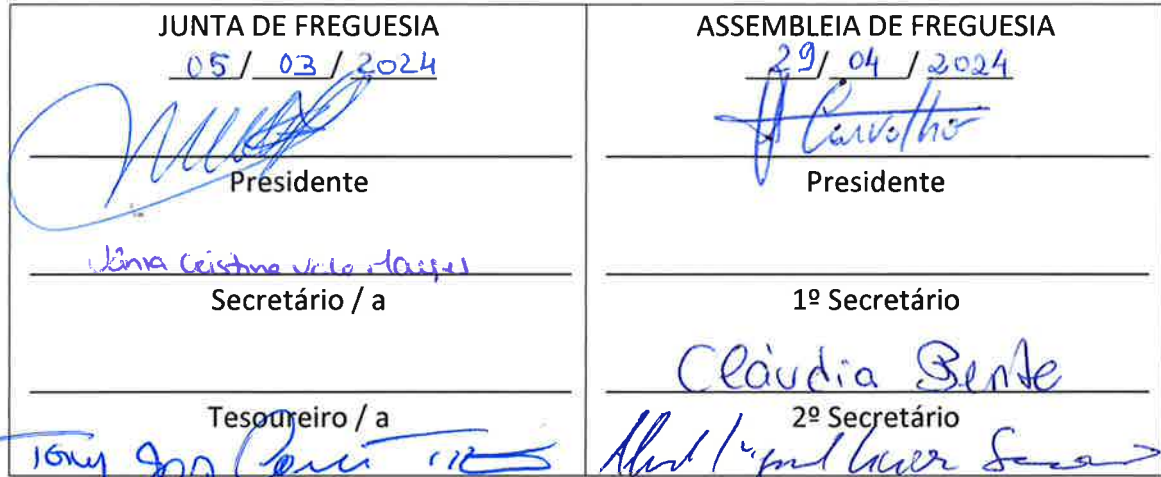 JUNTA DE FREGUESIA
05 / 03 / 2024
Presidente
Cristina
Secretário / a
Tesoureiro / a
ASSEMBLEIA DE FREGUESIA
29 / 04 / 2024
Carvalho
Presidente
1º Secretário
Cláudia Bente
2º Secretário